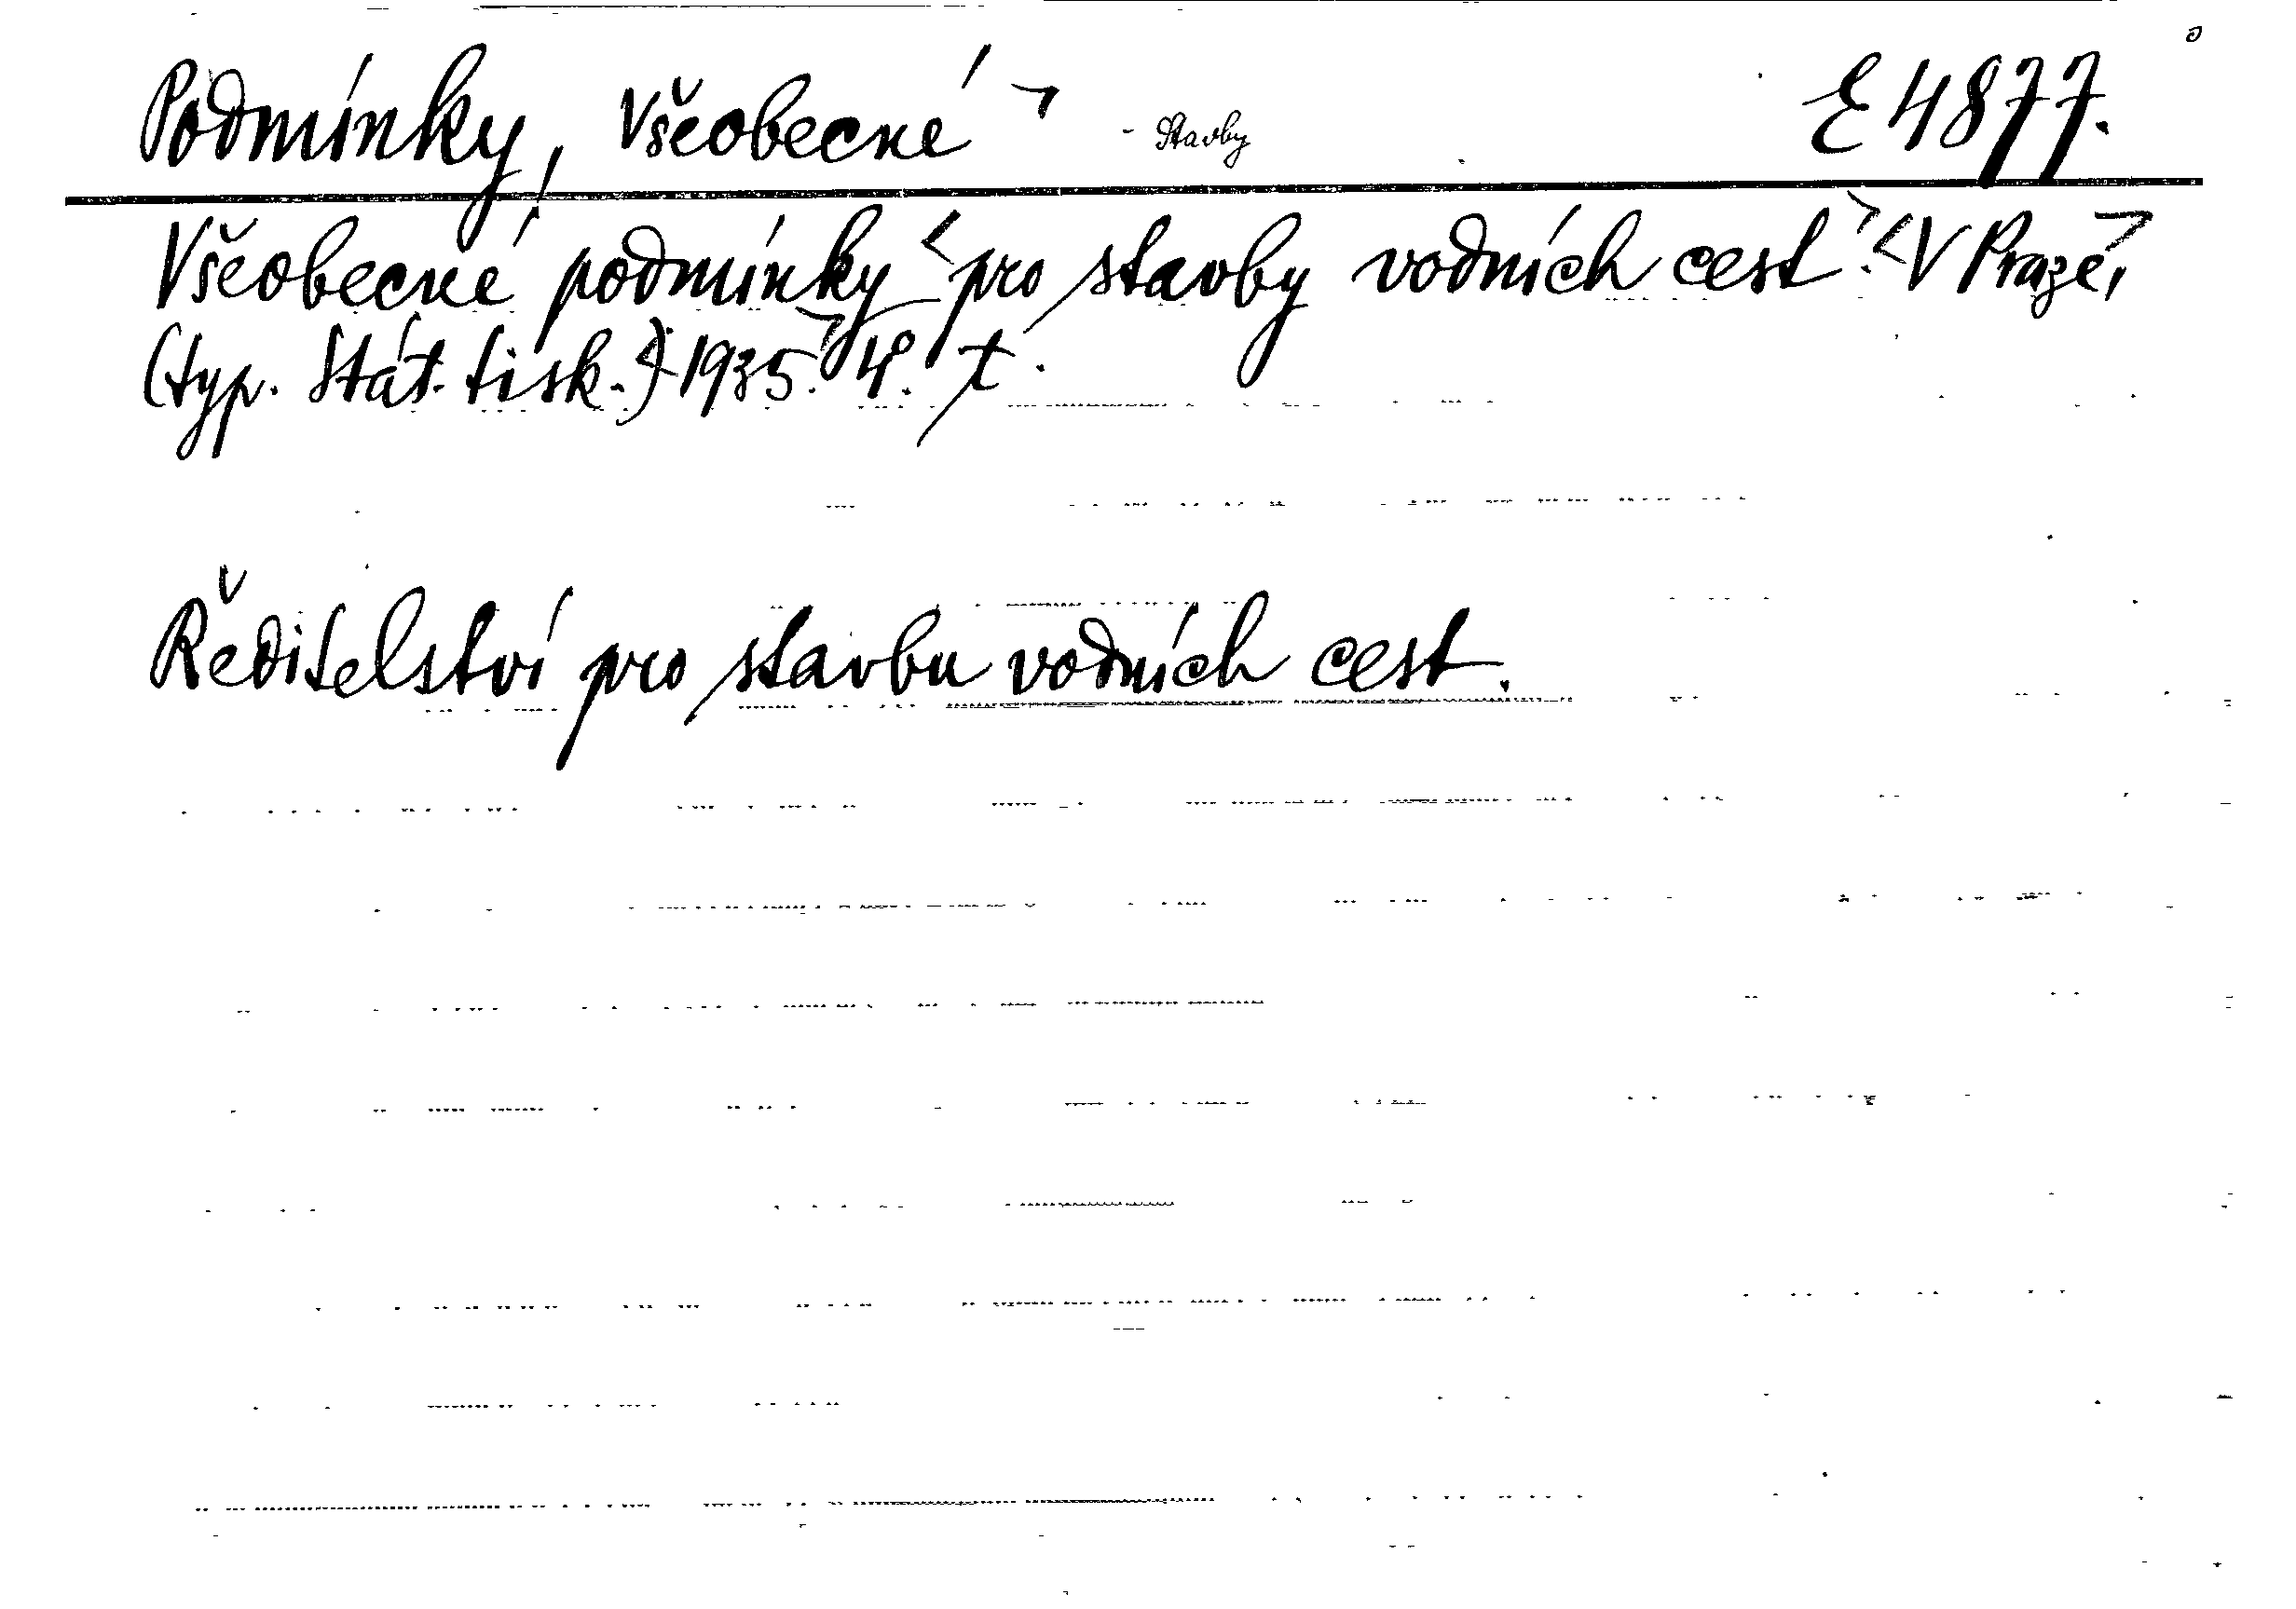 Podmínky, Všeobecné - Stavby E 4877.
Všeobecné podmínky pro stavby vodních cest. V Praze,
(typ. Stát. tisk.) 1935. 4°. t.
Ředitelství pro stavbu vodních cest.